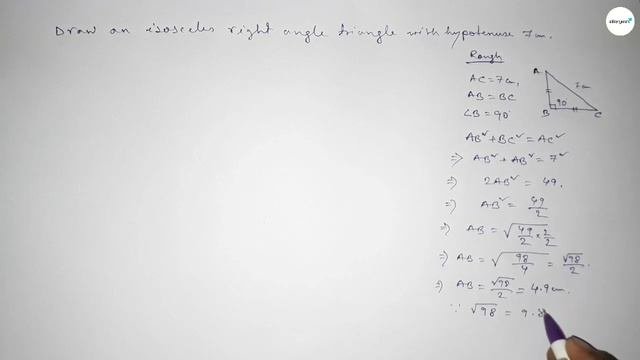 Draw an isosceles right angle triangle with hypotenuse 7cm.
Rough
AC = 7cm,
AB = BC
∠B = 90°
A
7cm
90
B
C
AB² + BC² = AC²
⇒ AB² + AB² = 7²
⇒ 2AB² = 49.
⇒ AB² = 49/2
⇒ AB = √(49/2 × 2/2)
⇒ AB = √(98/4) = √98/2.
⇒ AB = √98/2 = 4.9cm.
∵ √98 = 9.8